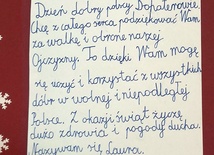 Dzień dobry polscy Bohaterowie.
Chcę z całego serca podziękować Wam
za walkę i obronę naszej
Ojczyzny. To dzięki Wam mogę
się uczyć i korzystać z wszystkich
dóbr w wolnej i niepodległej
Polsce. Z okazji świąt życzę
dużo zdrowia i pogody ducha.
Nazywam się Laura.